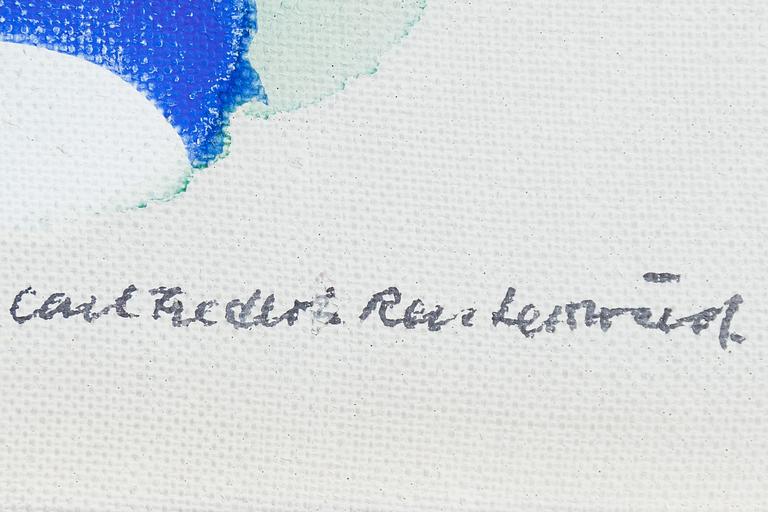 Carl Fredrik Reuterswärd